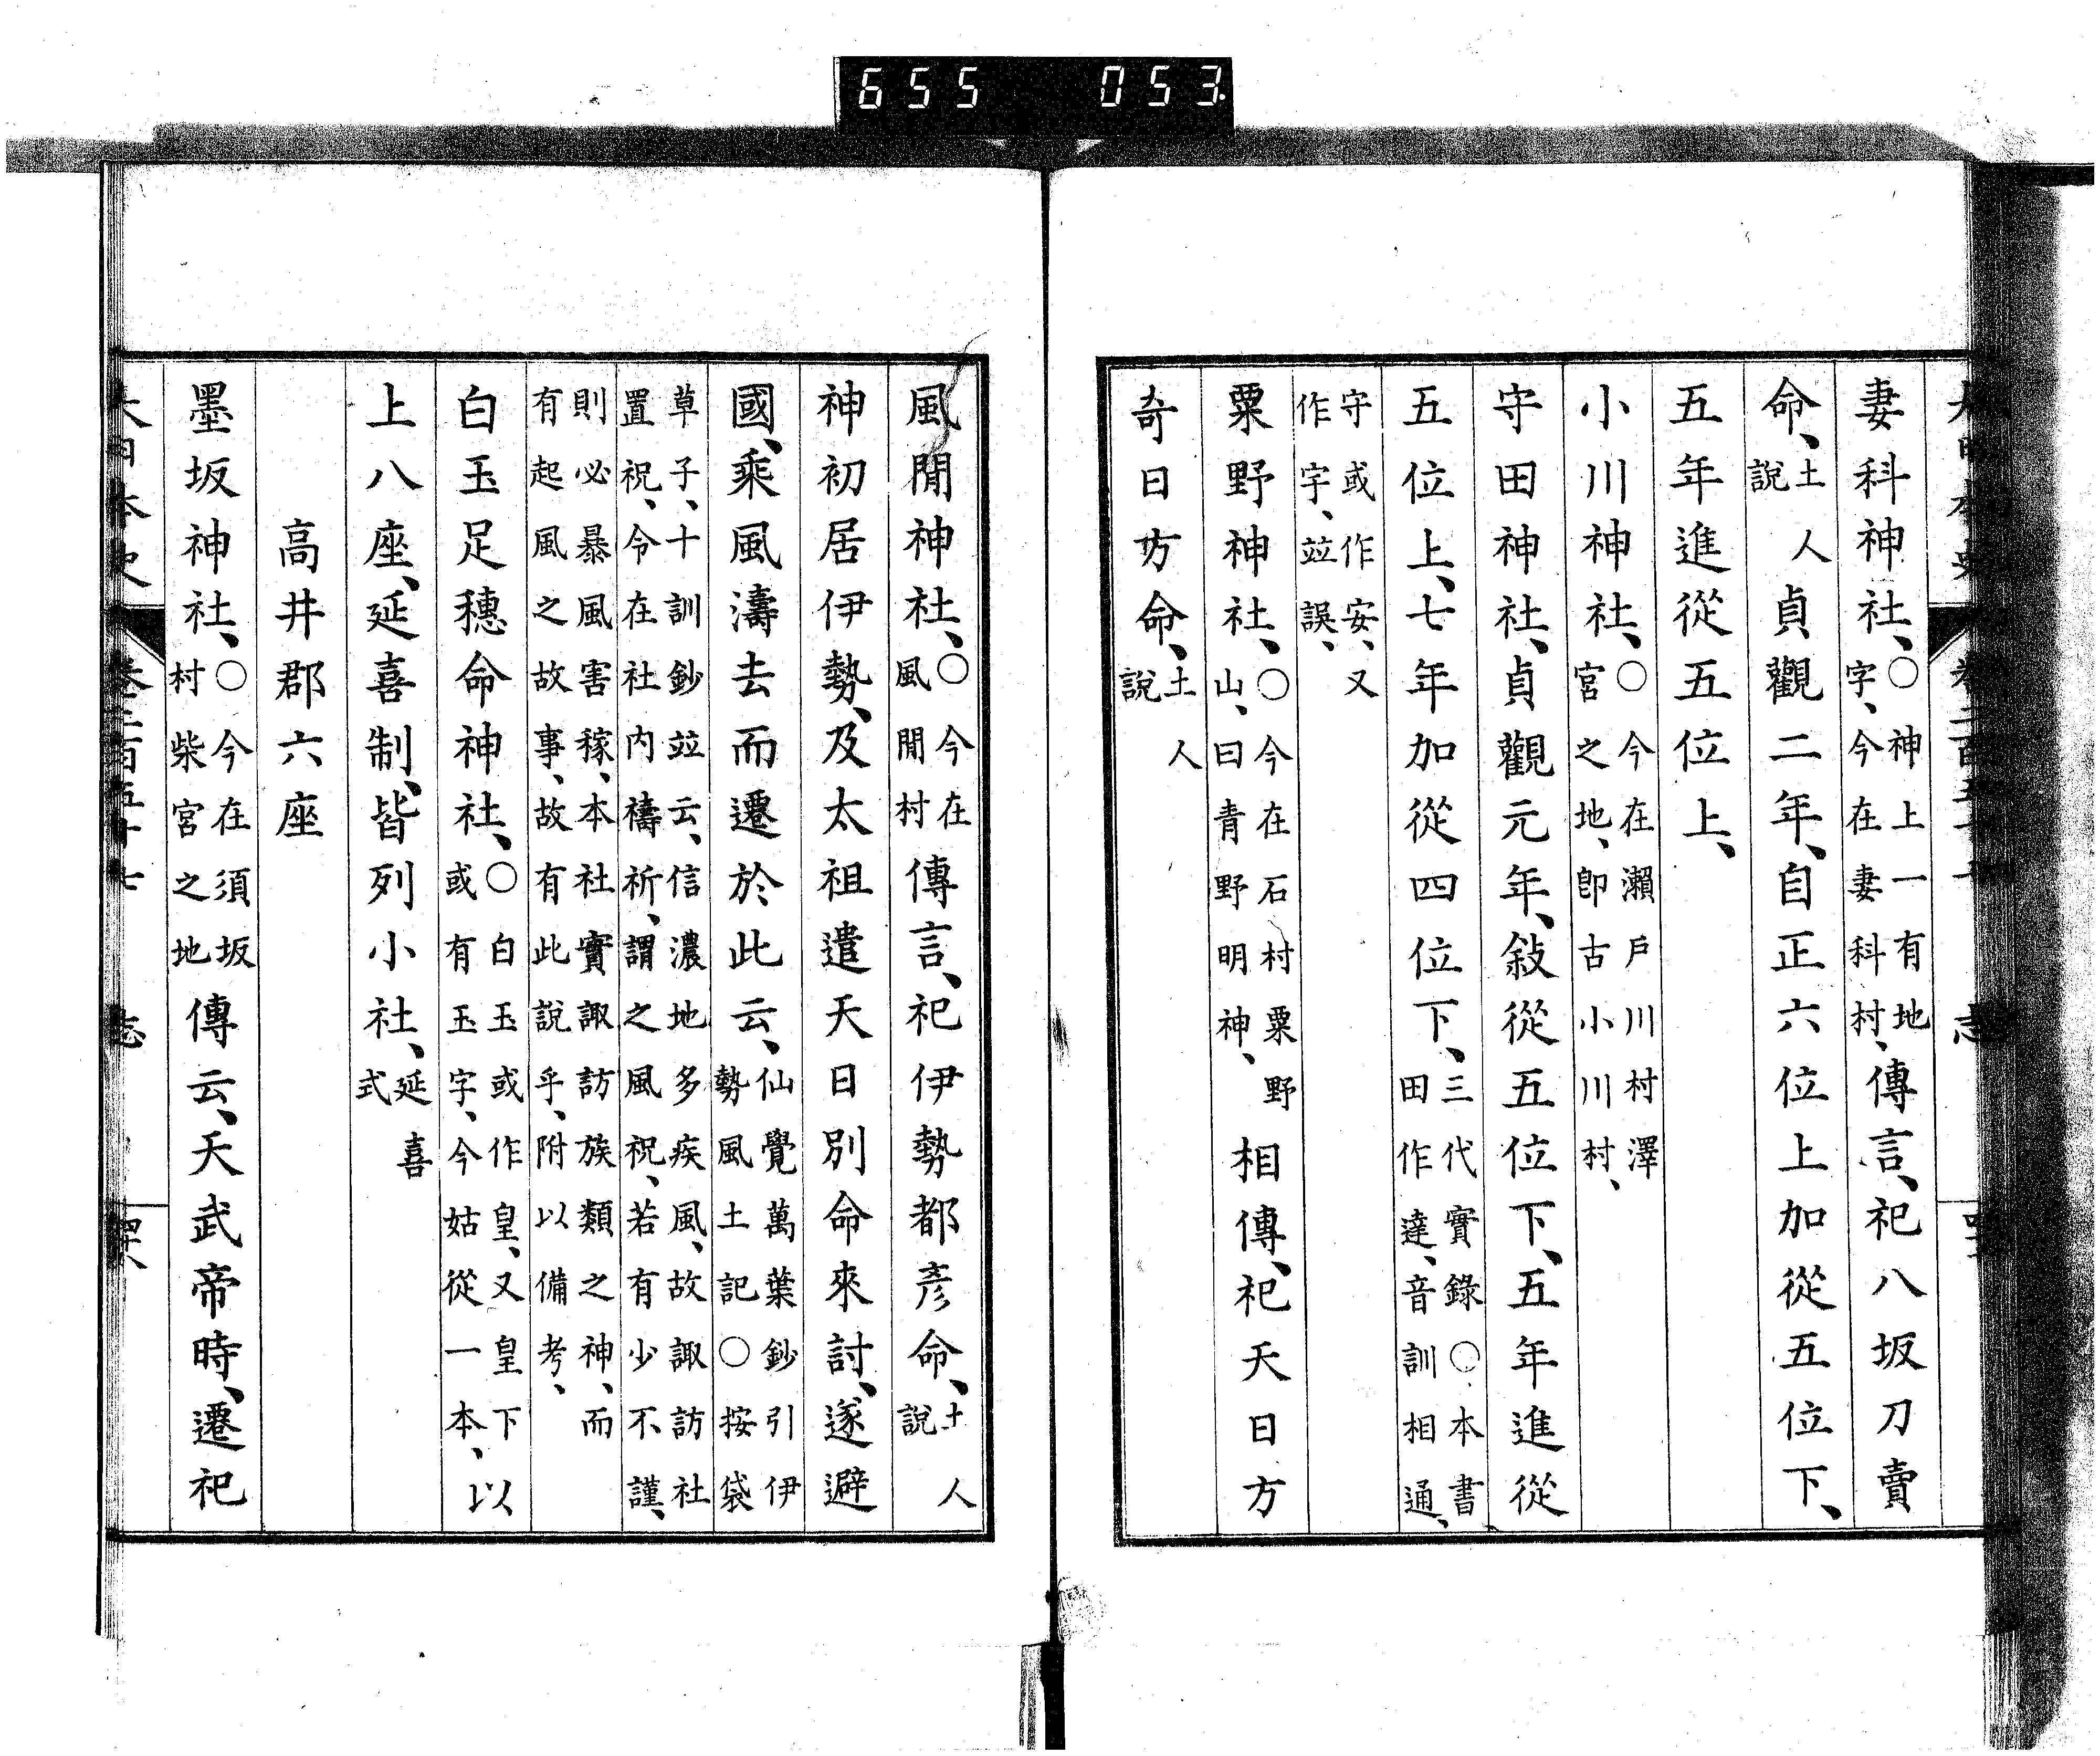 655 053
妻科神社、○神上一有地字、今在妻科村、傳言、祀八坂刀賣
命、土人說貞觀二年、自正六位上加從五位下、
五年進從五位上、
小川神社、○今在瀨戶川村澤宮之地、卽古小川村、
守田神社、貞觀元年、敍從五位下、五年進從
五位上、七年加從四位下、三代實錄○本書田作達、音訓相通、
守或作安、又作字、竝誤、
粟野神社、○今在石村粟野山、曰青野明神、相傳、祀天日方
奇日方命、土人說
風閒神社、○今在風閒村傳言、祀伊勢都彥命、土人說
神初居伊勢、及太祖遣天日別命來討、遂避
國、乘風濤去而遷於此云、仙覺萬葉鈔引伊勢風土記○按袋
草子、十訓鈔竝云、信濃地多疾風、故諏訪社置祝、令在社内禱祈、謂之風祝、若有少不謹、
則必暴風害稼、本社實諏訪族類之神、而有起風之故事、故有此說乎、附以備考、
白玉足穗命神社、○白玉或作皇、又皇下或有玉字、今姑從一本、以
上八座、延喜制、皆列小社、延喜式
高井郡六座
墨坂神社、○今在須坂村柴宮之地傳云、天武帝時、遷祀
大日本史 卷二百五十七 志